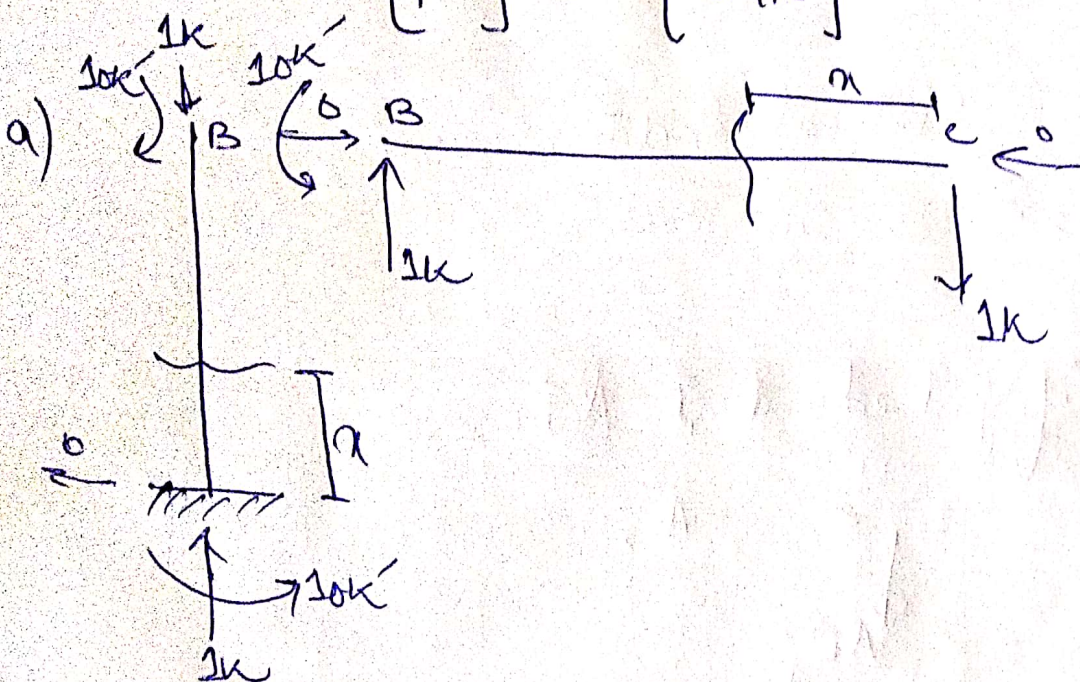 a)
10k' 1k 10k'
B 0 B x C 0
1k 1k
x
0
10k'
1k